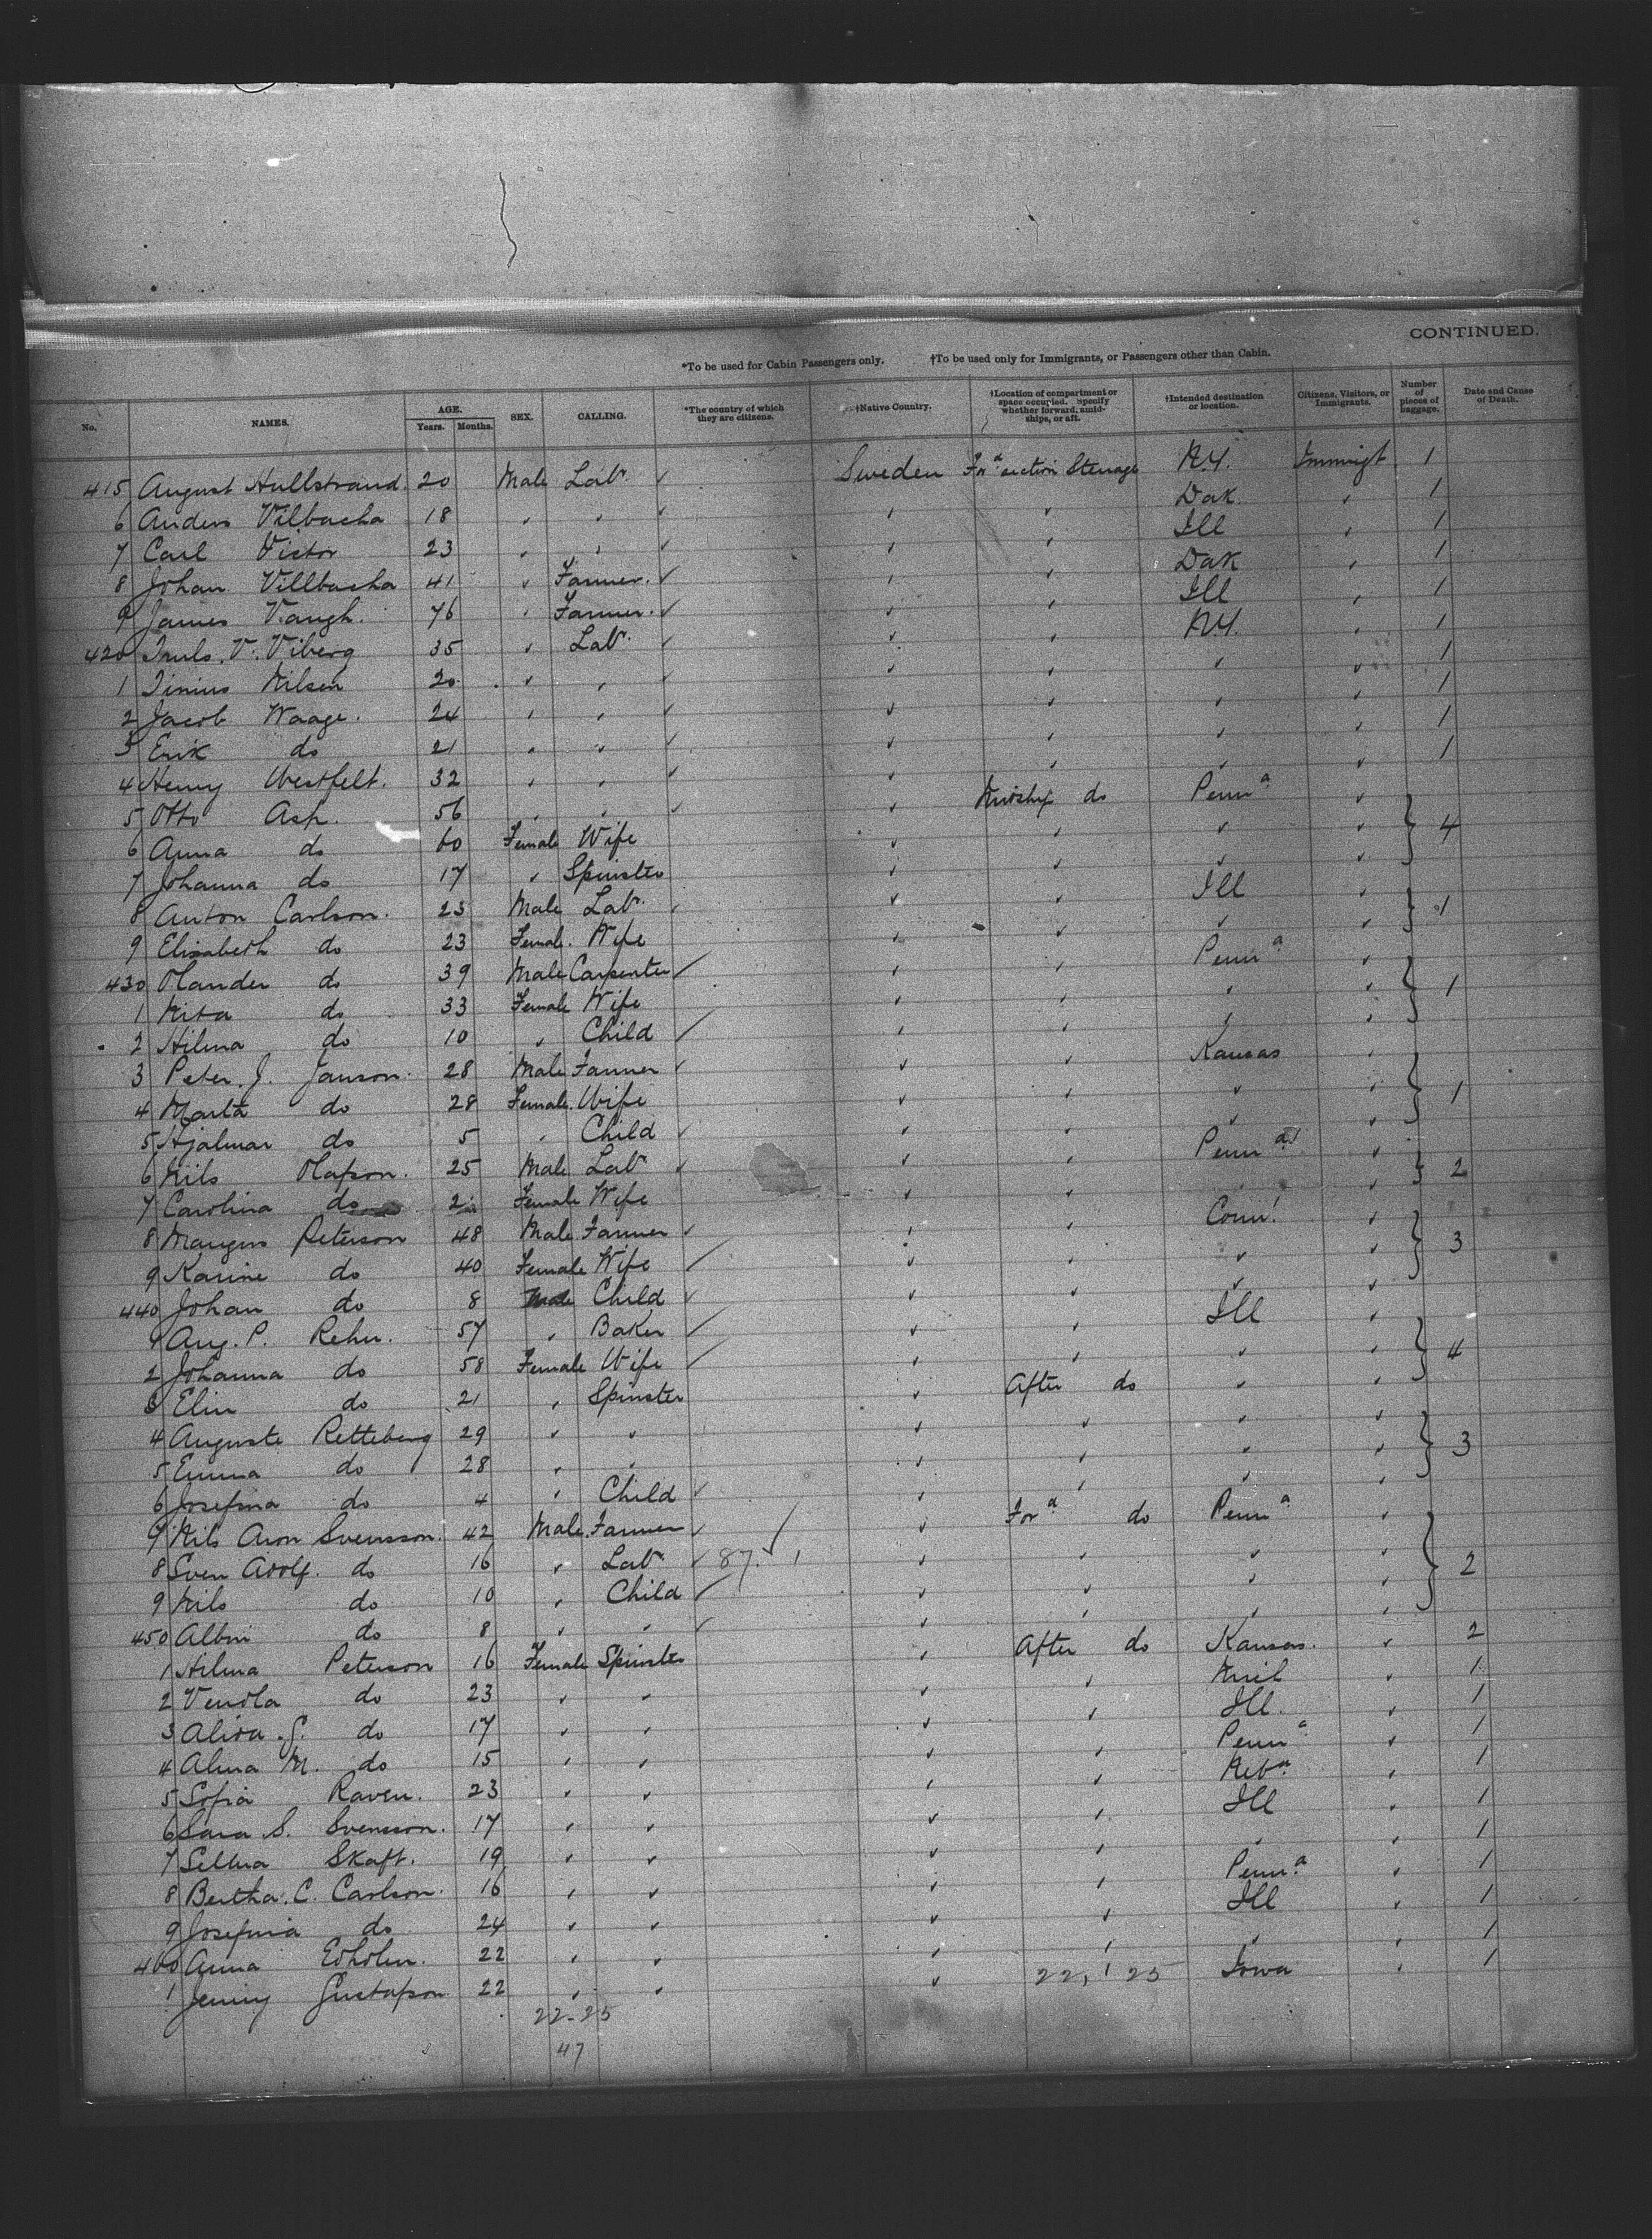 CONTINUED.
*To be used for Cabin Passengers only. †To be used only for Immigrants, or Passengers other than Cabin.
No. NAMES. AGE. Years. Months. SEX. CALLING. *The country of which they are citizens. †Native Country. †Location of compartment or space occupied. Specify whether forward, amidships, or aft. †Intended destination or location. Citizens, Visitors, or Immigrants. Number of pieces of baggage. Date and Cause of Death.
415 August Hullstrand. 20 Male Labr. Sweden Ford section Steerage N.Y. Immigt 1
6 Anders Vilbacha 18 Dak. 1
7 Carl Victor 23 Ill 1
8 Johan Villbacha 41 Farmer. Dak 1
9 James Vaugh. 76 Farmer. Ill 1
420 V. Viberg 35 Labr. N.Y. 1
1 Nilsen 20 1
2 Jacob Waage. 24 1
3 Erik do 21 1
4 Henry Westfelt. 32 1
5 Otto Ash. 56 Midship do Penna
6 Anna do 60 Female Wife 4
7 Johanna do 17 Spinster
8 Anton Carlson. 23 Male Labr. Ill
9 Elisabeth do 23 Female. Wife 1
430 Olander do 39 Male Carpenter Penna
1 Nita do 33 Female Wife 1
2 Hilma do 10 Child
3 Peter. J. Janson. 28 Male Farmer Kansas
4 Marta do 28 Female. Wife 1
5 Hjalmar do 5 Child
6 Nils Olafson. 25 Male Labr Penna
7 Carolina do Female Wife 2
8 Mangus Peterson 48 Male Farmer Conn.
9 Karine do 40 Female Wife 3
440 Johan do 8 Male Child
1 Aug. P. Rehn. 57 Baker Ill
2 Johanna do 58 Female Wife 4
3 Elin do 21 Spinster After do
4 Auguste Retteberg 29
5 Emma do 28 3
6 Josefina do 4 Child
7 Nils Aron Svensson. 42 Male. Farmer Ford do Penna
8 Sven Adolf. do 16 Labr. 87. 2
9 Nils do 10 Child
450 Albin do 8
1 Hilma Peterson 16 Female Spinster After do Kansas. 2
2 Vendla do 23 1
3 Alida. G. do 17 Ill. 1
4 Alma M. do 15 Penna 1
5 Sofia Raven. 23 Neba. 1
6 Sara S. Svensson. 17 Ill 1
7 Selma Skaft. 19 1
8 Bertha. C. Carlson. 16 Penn.a 1
9 Josefina do 24 Ill 1
460 Anna Edholm. 22 1
1 Jenny Gustafson 22 22, 25 Iowa 1
22-25
47